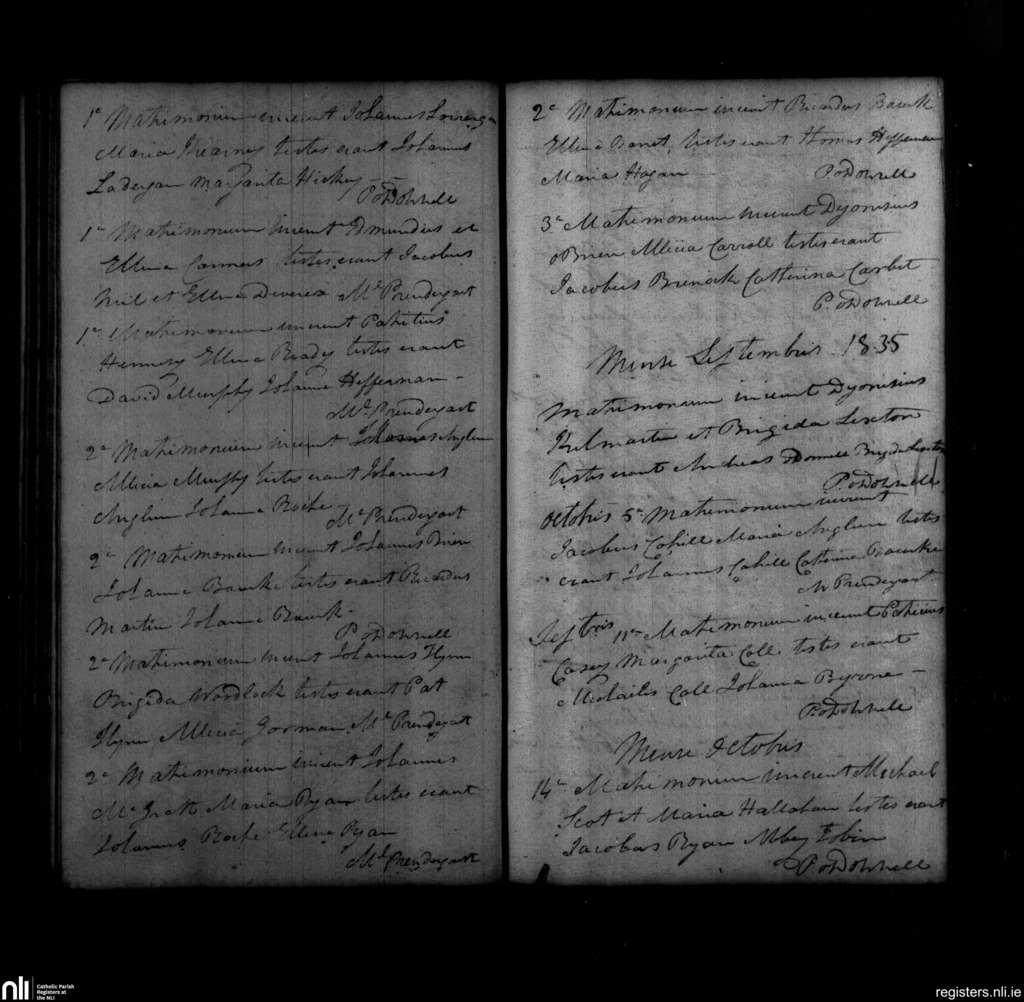 1a Matrimonium inierunt Johannes Lonergan
Maria Kearney testes erant Johannes
Ladergan Margarita Hickey
P. O Donnell
1a Matrimonium inierunt Edmundus et
Ellena Connors testes erant Jacobus
Neil et Ellena Deverex Ml Prendergast
1a Matrimonium inierunt Patritius
Hennesy Ellena Brady testes erant
David Murphy Johanna Heffernan
Ml Prendergast
2a Matrimonium inierunt Anglim
Allicia Murphy testes erant Johannes
Anglim Johanna Roche
Ml Prendergast
2a Matrimonium inierunt Johannes Brien
Johanna Bourke testes erant Ricardus
Martin Johanna Bourk
P. O Donnell
2a Matrimonium inierunt Johannes Flynn
Brigida Wordlock testes erant Pat
Flynn Allicia Gorman Ml Prendergast
2a Matrimonium inierunt Johannes
McGrath Maria Ryan testes erant
Johannes Roche Ellena Ryan
Ml Prendergast
2a Matrimonium inierunt Ricardus Bourk
Ellena Barret, testes erant Thomas Heffernan
Maria Hogan P. O Donnell
3a Matrimonium inierunt Dyonisius
O Brien Allicia Carroll testes erant
Jacobus Brenock Catherina Corbet
P. O Donnell
Mense Septembris 1835
Matrimonium inierunt Dyonisius
Kelmartin et Brigida Sexton
testes erant Andreas Donnell Brigida Sexton
P. O Donnell
Octobris 5a Matrimonium inierunt
Jacobus Cahill Maria Anglim testes
erant Johannes Cahill Catherina Bourke
M Prendergast
Septbris 11a Matrimonium inierunt Patricius
Casey Margarita Coll testes erant
Michaeles Coll Johanna Byrone
P. O Donnell
Mense Octobris
14a Matrimonium inierunt Michael
Scot et Maria Hallahan testes erant
Jacobus Ryan Abbey Tobin
P. O Donnell
nli
Catholic Parish
Registers at
the NLI
registers.nli.ie